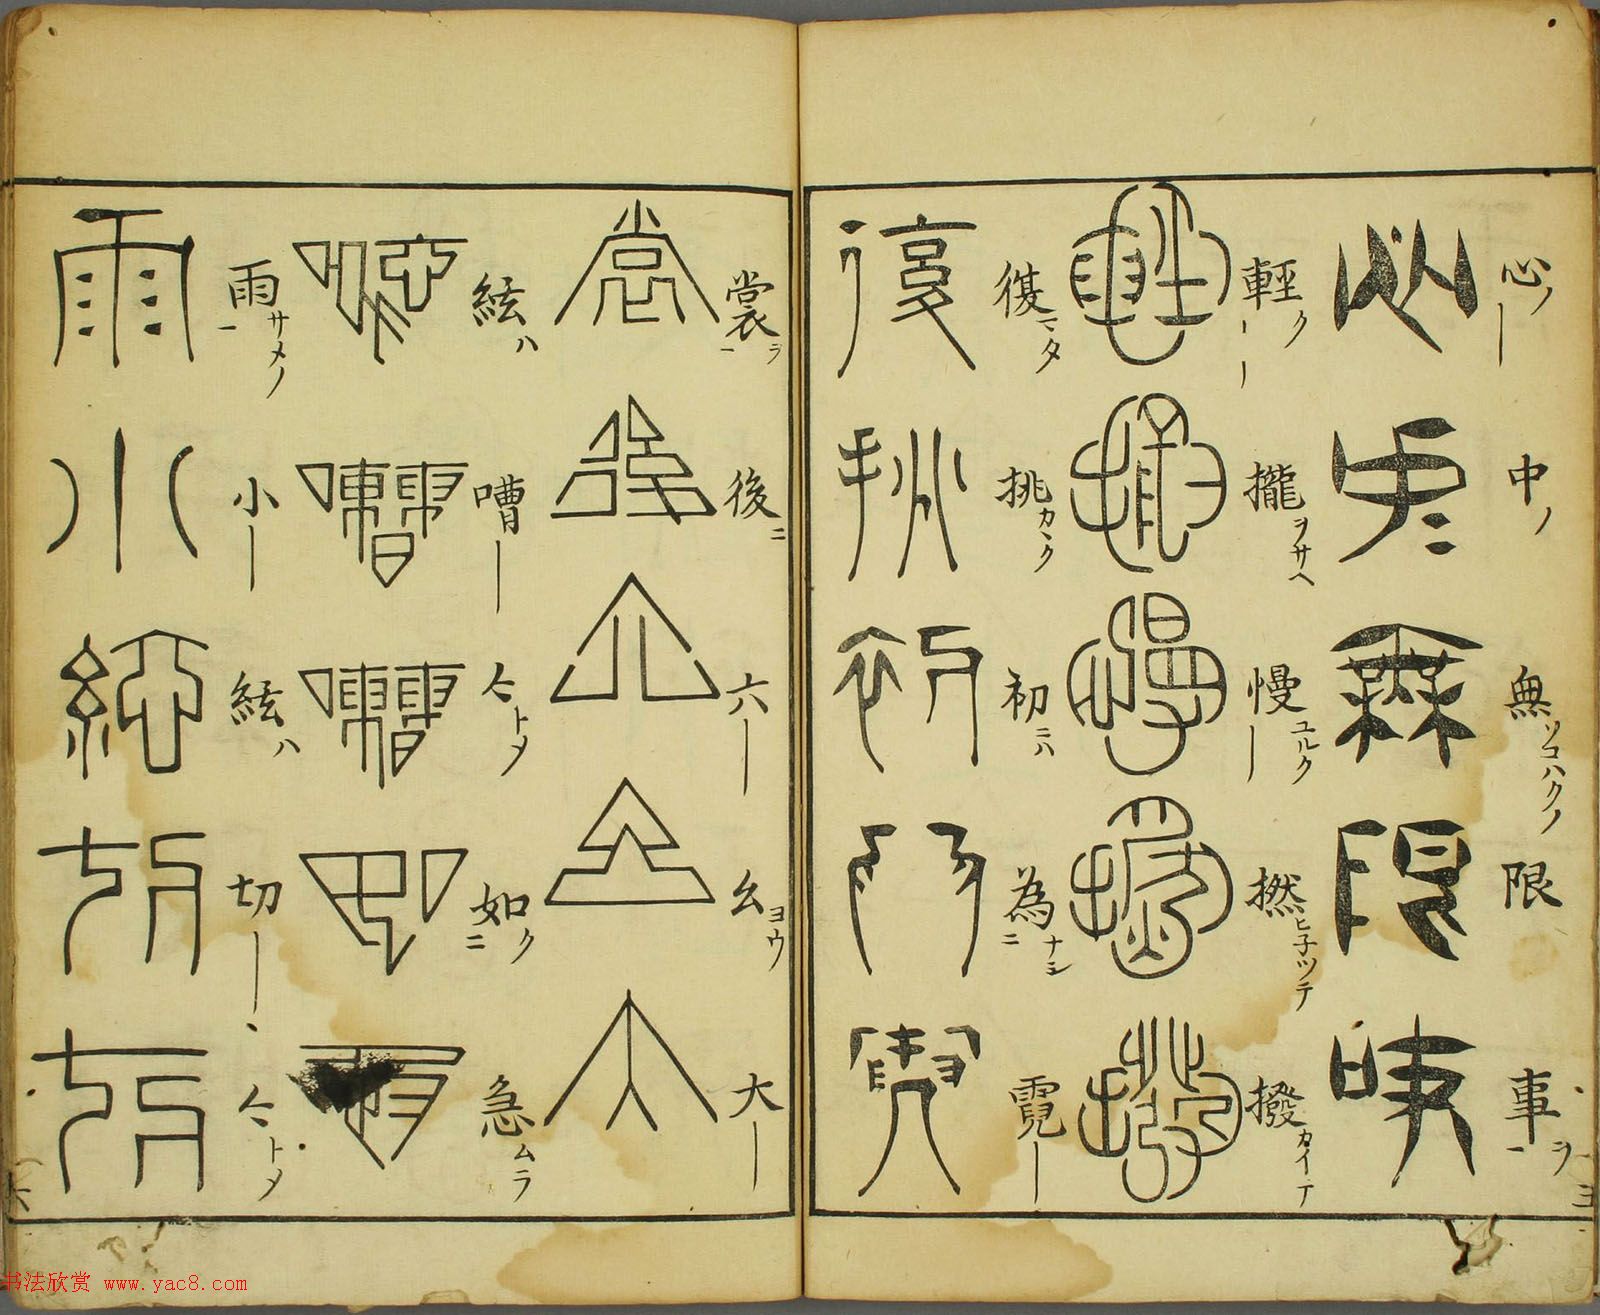 心ノ
中ノ
無ソコハクノ
限
事ヲ一
輕ク
攏ヲサヘ
慢ユルク
撚ヒ子ツテ
撥カイテ
復マタ
挑カヽク
初ニハ
為ナシニ
霓
裳ヲ一
後ニ
六
幺ヨウ
大
絃ハ
嘈
仝トメ
如クニ
急ムラ
雨サメノ一
小
絃ハ
切
仝トメ
三
六
书法欣赏 www.yac8.com